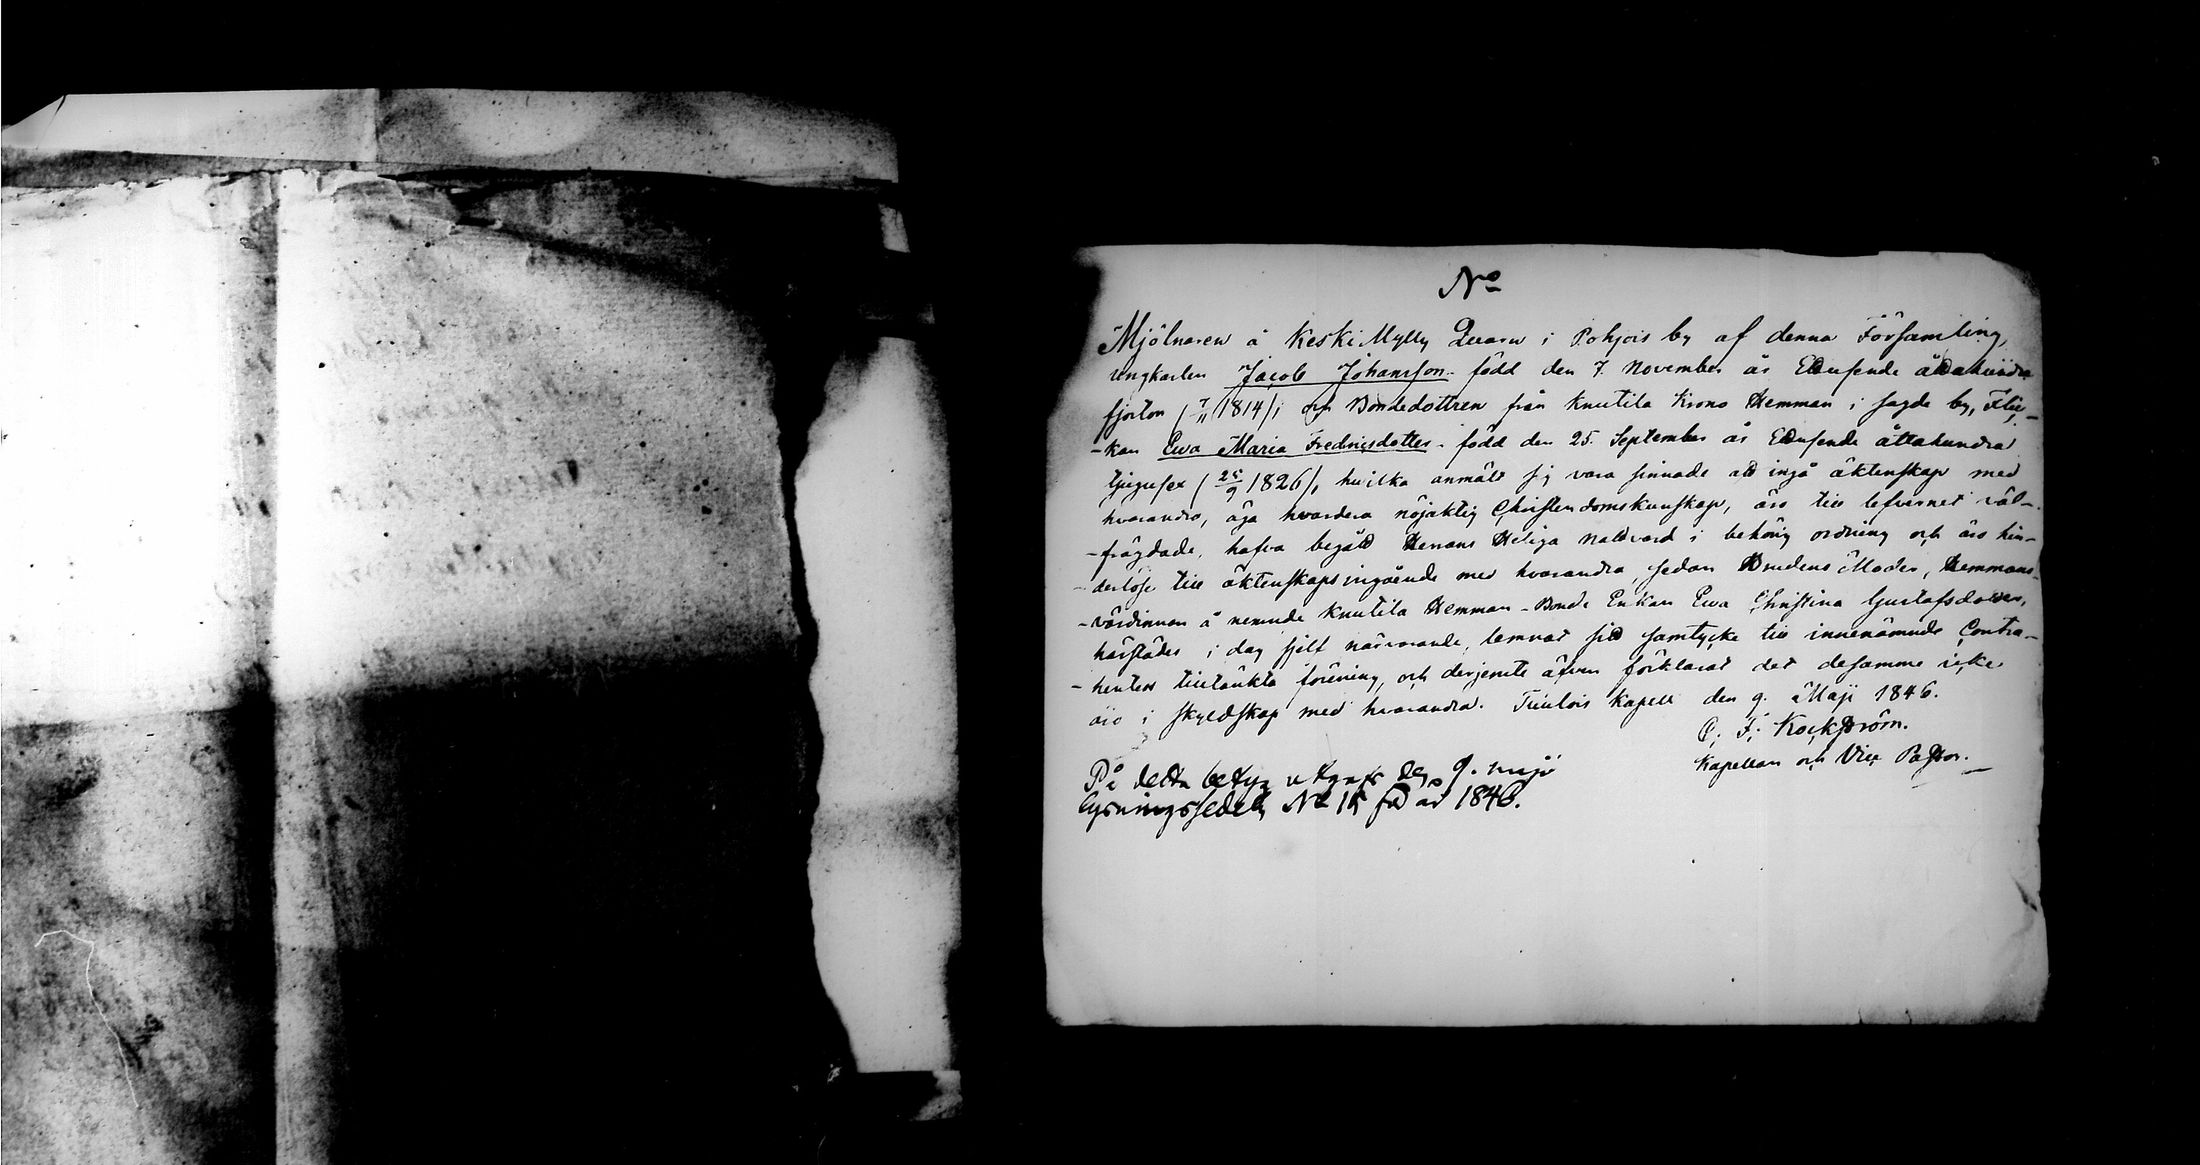 No
Mjölnaren å Keski Mylly Qvarn i Pohjois by af denna Församling,
ungkarlen Jacob Johansson född den 7. November år Ettusende åttahundra
fjorton (7/11 1814), och Bondedottren från Knutila Krono Hemman i sagde by, Flic-
-kan Ewa Maria Fredricsdotter född den 25. September år Ettusende åttahundra
tjugusex (25/9 1826), hvilka anmält sig vara sinnade att ingå äktenskap med
hvarandra, äga hvardera nöjaktig Christendomskunskap, äro till lefvernet väl-
-frägdade, hafva begått Herrans Heliga Nattvard i behörig ordning och äro hin-
-derlöse till äktenskaps ingående med hvarandra, sedan Brudens Moder, Hemmans-
-värdinnan å nemnde Knutila Hemman Bonde Enkan Ewa Christina Gustafsdotter,
härstädes i dag sjelf närvarande, lemnat sitt samtycke till innenämnde Contra-
-henters tilltänkta förening, och derjemte äfven förklarat det desamme icke
äro i skyldskap med hvarandra. Tuulois Kapell den 9. Maji 1846.
C. F. Kockström.
Kapellan och Vice Pastor.
På detta betyg utgafs den 9. maji
lysningssedel No 15 för år 1846.